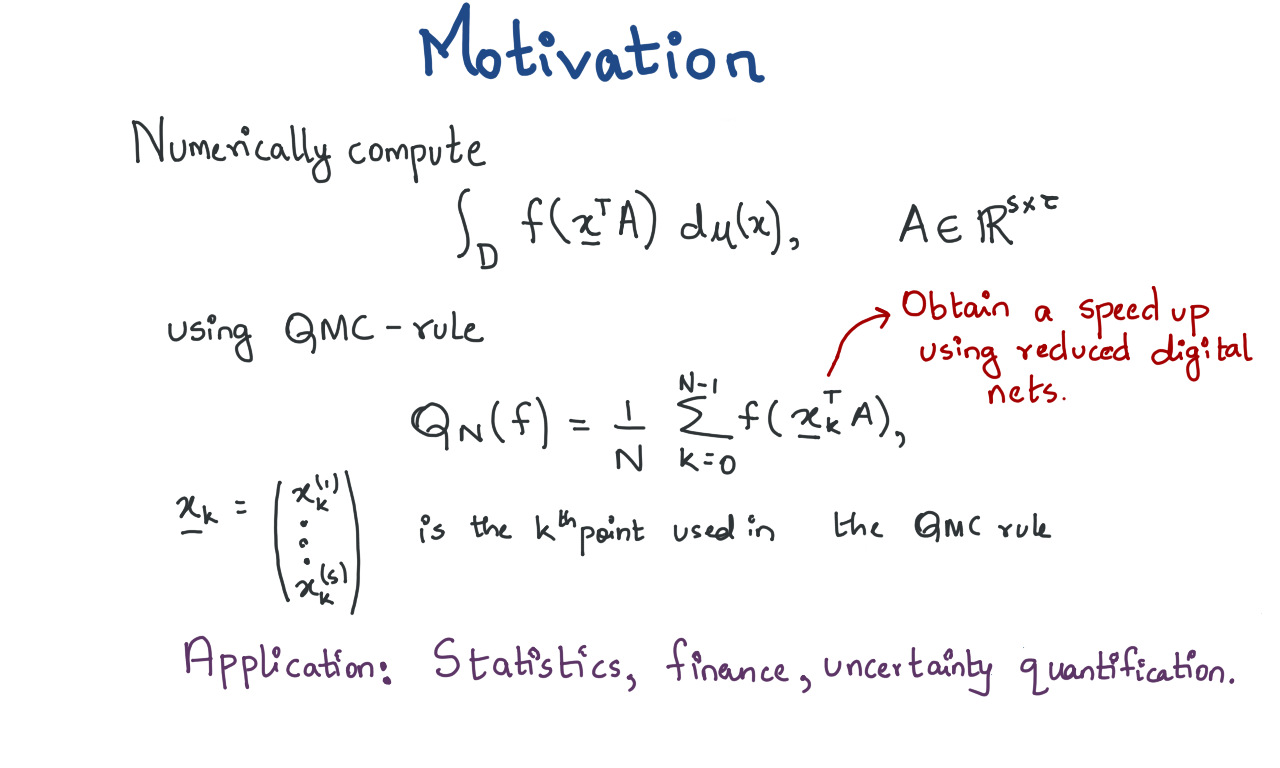 Motivation
Numerically compute
∫_D f(x̲ᵀA) dμ(x), A ∈ ℝ^{s×τ}
using QMC-rule
Obtain a speed up
using reduced digital
nets.
Q_N(f) = 1/N ∑_{k=0}^{N-1} f(x̲_kᵀ A),
x̲_k = (x_k^{(1)} ⋮ x_k^{(s)}) is the kᵗʰ point used in the QMC rule
Application: Statistics, finance, uncertainty quantification.